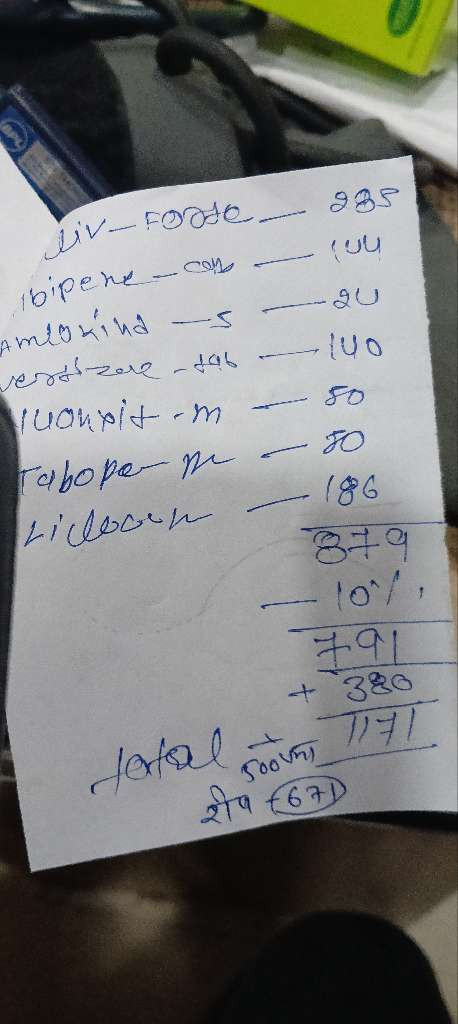 Liv-Forte — 235
ibipene - cap — 144
Amlokind — 5 — 24
vertizone - tab — 140
- m — 50
Tabope m — 50
— 186
879
— 10%
791
+ 380
Total → 1171
500
शेष 671